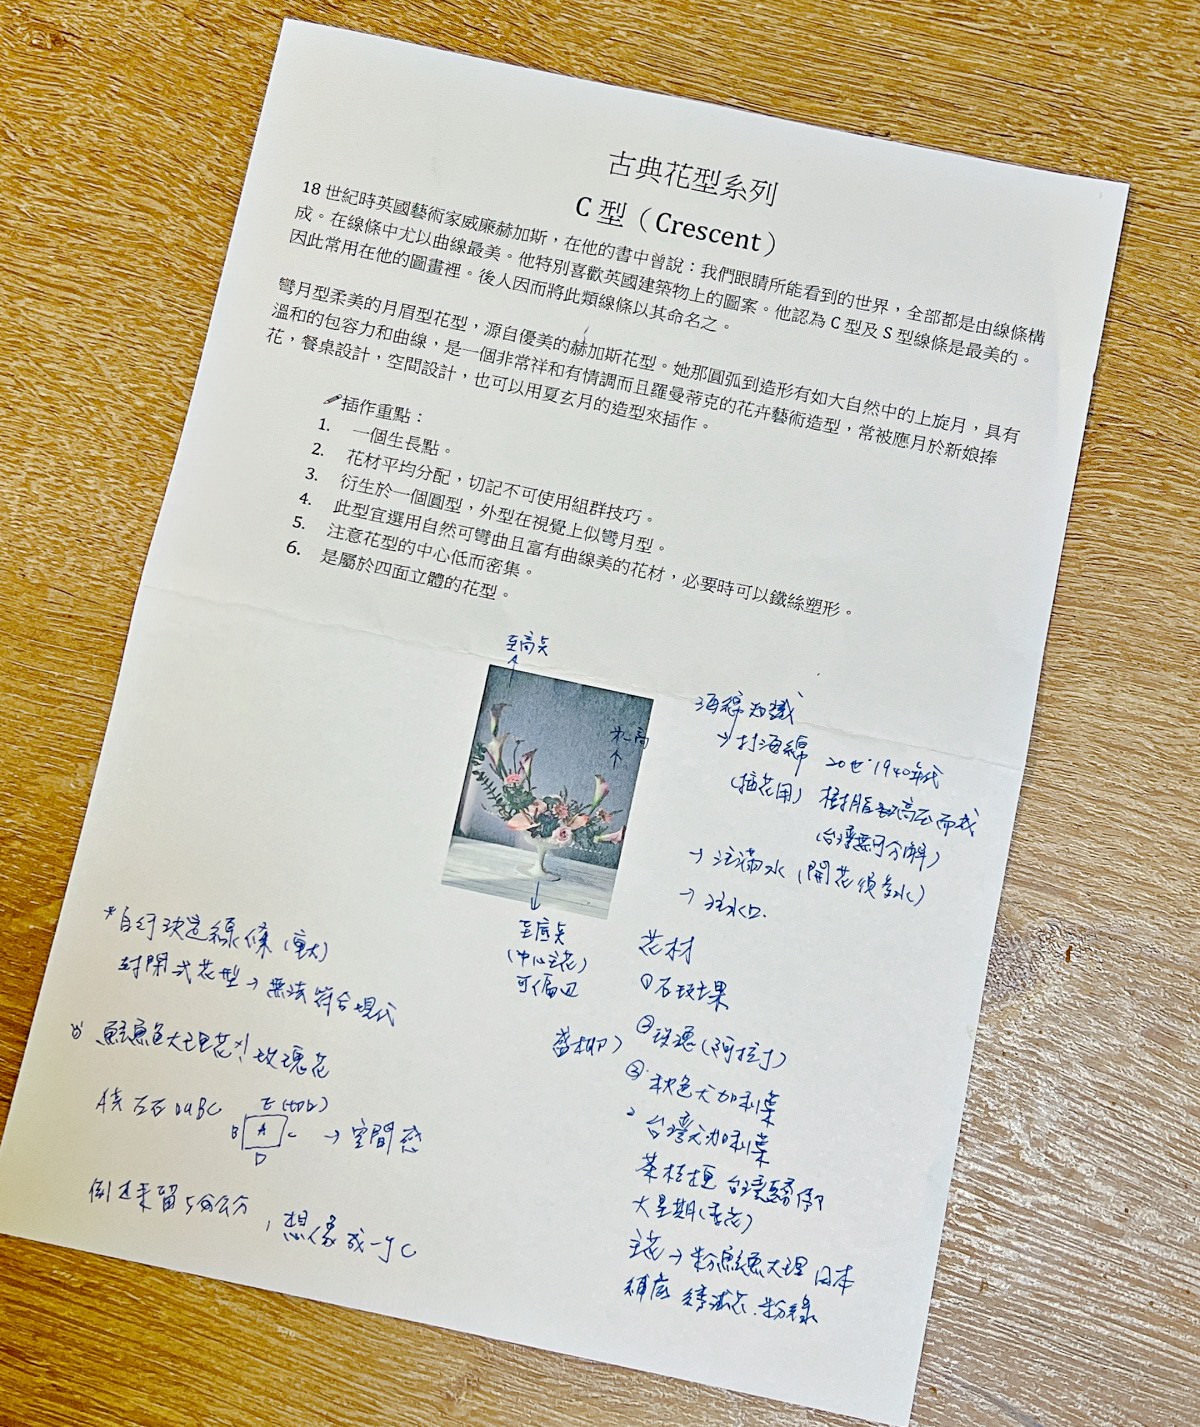 古典花型系列
C 型（Crescent）
18 世紀時英國藝術家威廉赫加斯，在他的書中曾說：我們眼睛所能看到的世界，全部都是由線條構
成。在線條中尤以曲線最美。他特別喜歡英國建築物上的圖案。他認為 C 型及 S 型線條是最美的。
因此常用在他的圖畫裡。後人因而將此類線條以其命名之。
彎月型柔美的月眉型花型，源自優美的赫加斯花型。她那圓弧到造形有如大自然中的上旋月，具有
溫和的包容力和曲線，是一個非常祥和有情調而且羅曼蒂克的花卉藝術造型，常被應月於新娘捧
花，餐桌設計，空間設計，也可以用夏玄月的造型來插作。
插作重點：
1. 一個生長點。
2. 花材平均分配，切記不可使用組群技巧。
3. 衍生於一個圓型，外型在視覺上似彎月型。
4. 此型宜選用自然可彎曲且富有曲線美的花材，必要時可以鐵絲塑形。
5. 注意花型的中心低而密集。
6. 是屬於四面立體的花型。
至高點
次高
海綿知識
→打海綿 20世 1940年代
(插花用) 樹脂 高壓而成
(台灣無可分解)
→ 注滿水 (開花須多水)
→ 注水口.
至底点
(中心主花)
可偏四
*自行決定線條(重大)
封閉式花型→無法符合現代
鮭魚色大理花 玫瑰花
依左右 ABC E(top)
B A C → 空間感
D
倒过來留5公分，想像成一個C
花材
①石斑果
②玫瑰(阿拉丁)
③秋色尤加利葉
台灣尤加利葉
茶桔梗 台灣
大星期(季花)
主花→粉鮭魚大理 日本
補底 繡球花.粉綠